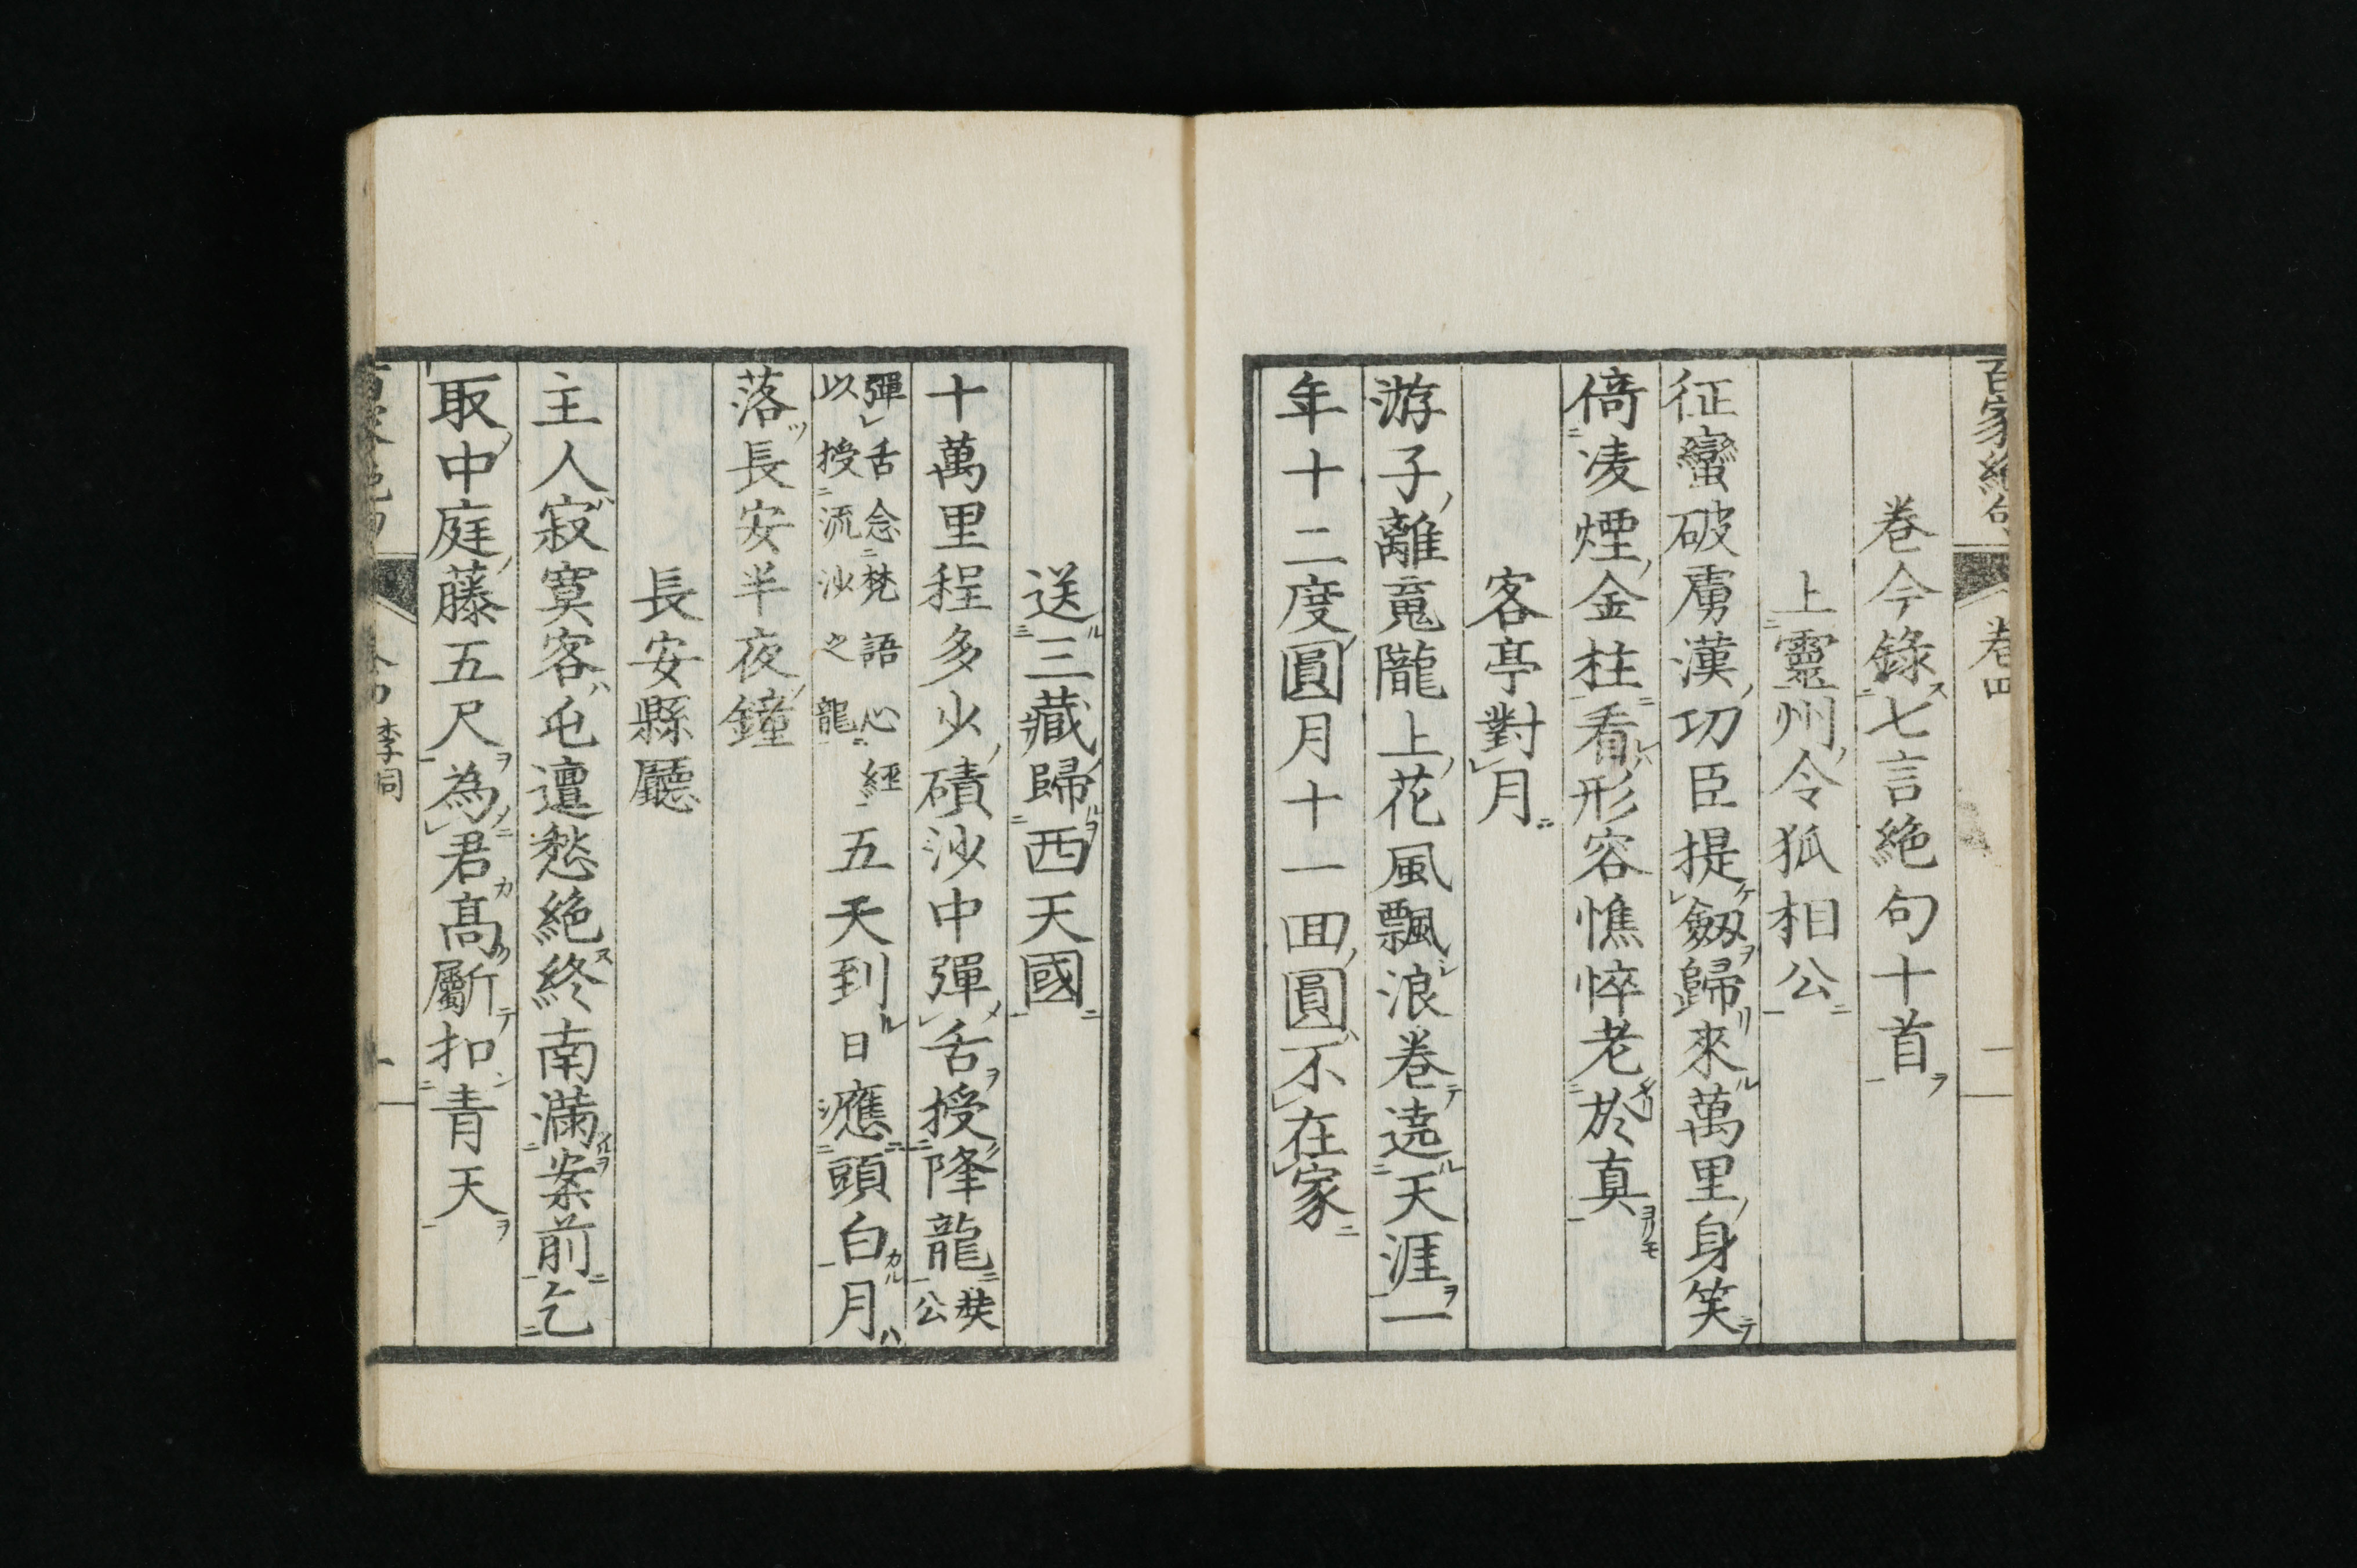 百家絶句 卷四 一
卷今錄七言絶句十首
上靈州令狐相公
征蠻破虜漢功臣提劔歸來萬里身笑
倚凌煙金柱看形容憔悴老於真
客亭對月
游子離䰟隴上花風飄浪卷遶天涯一
年十二度圓月十一回圓不在家
送三藏歸西天國
十萬里程多少磧沙中彈舌授降龍奘公
彈舌念梵語心經
以授流沙之龍
五天到日應頭白月
落長安半夜鐘
長安縣廳
主人寂寞客屯邅愁絶終南滿案前乞
取中庭藤五尺為君高斸扣青天
李洞